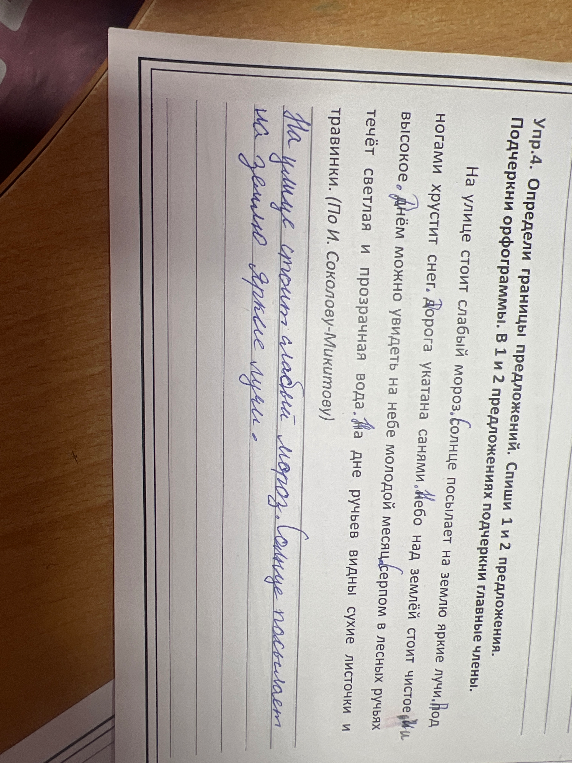 Упр.4. Определи границы предложений. Спиши 1 и 2 предложения.
Подчеркни орфограммы. В 1 и 2 предложениях подчеркни главные члены.
На улице стоит слабый мороз. Солнце посылает на землю яркие лучи. Под
ногами хрустит снег. Дорога укатана санями. Небо над землёй стоит чистое
высокое. Днём можно увидеть на небе молодой месяц. Серпом в лесных ручьях
течёт светлая и прозрачная вода. На дне ручьев видны сухие листочки и
травинки. (По И. Соколову-Микитову)
На улице стоит слабый мороз. Солнце посылает
на землю яркие лучи.